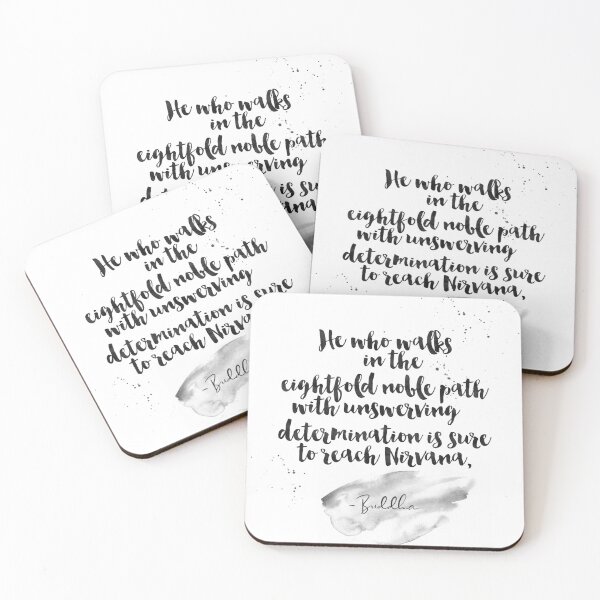 He who walks
in the
eightfold noble path
with unswerving
is sure
He who walks
in the
eightfold noble path
with unswerving
determination is sure
to reach Nirvana,
He who walks
in the
eightfold noble path
with unswerving
determination is sure
to reach
He who walks
in the
eightfold noble path
with unswerving
determination is sure
to reach Nirvana,
- Buddha